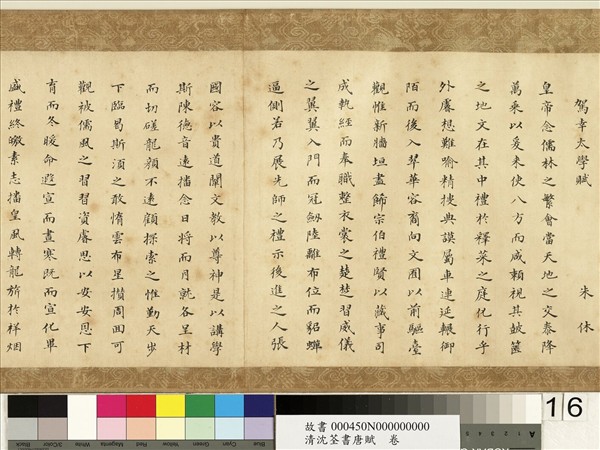 駕幸太學賦 朱休
皇帝念儒林之繁會當天地之交泰降
萬乘以爰來使八方而咸賴視其鼓篋
之地文在其中禮於釋菜之庭化行乎
外睿想難喻精搜典謨屬車連延輾御
陌而後入翠華容裔向文囿以前驅臺
觀惟新牆垣盡飾宗伯禮賢以蕆事司
成執經而奉職整衣裳之楚楚習威儀
之翼翼入門而冠劒陸離布位而貂蟬
逼側若乃展先師之禮示後進之人張
國容以貴道闡文教以尊神是以講學
斯陳德音遠播念日將而月就各呈材
而切磋龍顏不遠顧探索之惟勤天步
下臨曷斯須之敢惰雲布星攢周回可
觀被儒風之習習資睿思以安安恩下
育而冬暖命遐宣而晝寒既而宣化畢
盛禮終徼素志播皇風轉龍旂於祥烟
Black
3/Color
White
Magenta
Red
Yellow
Green
Cyan
Blue
故書 000450N000000000
清沈荃書唐賦 卷
A
16